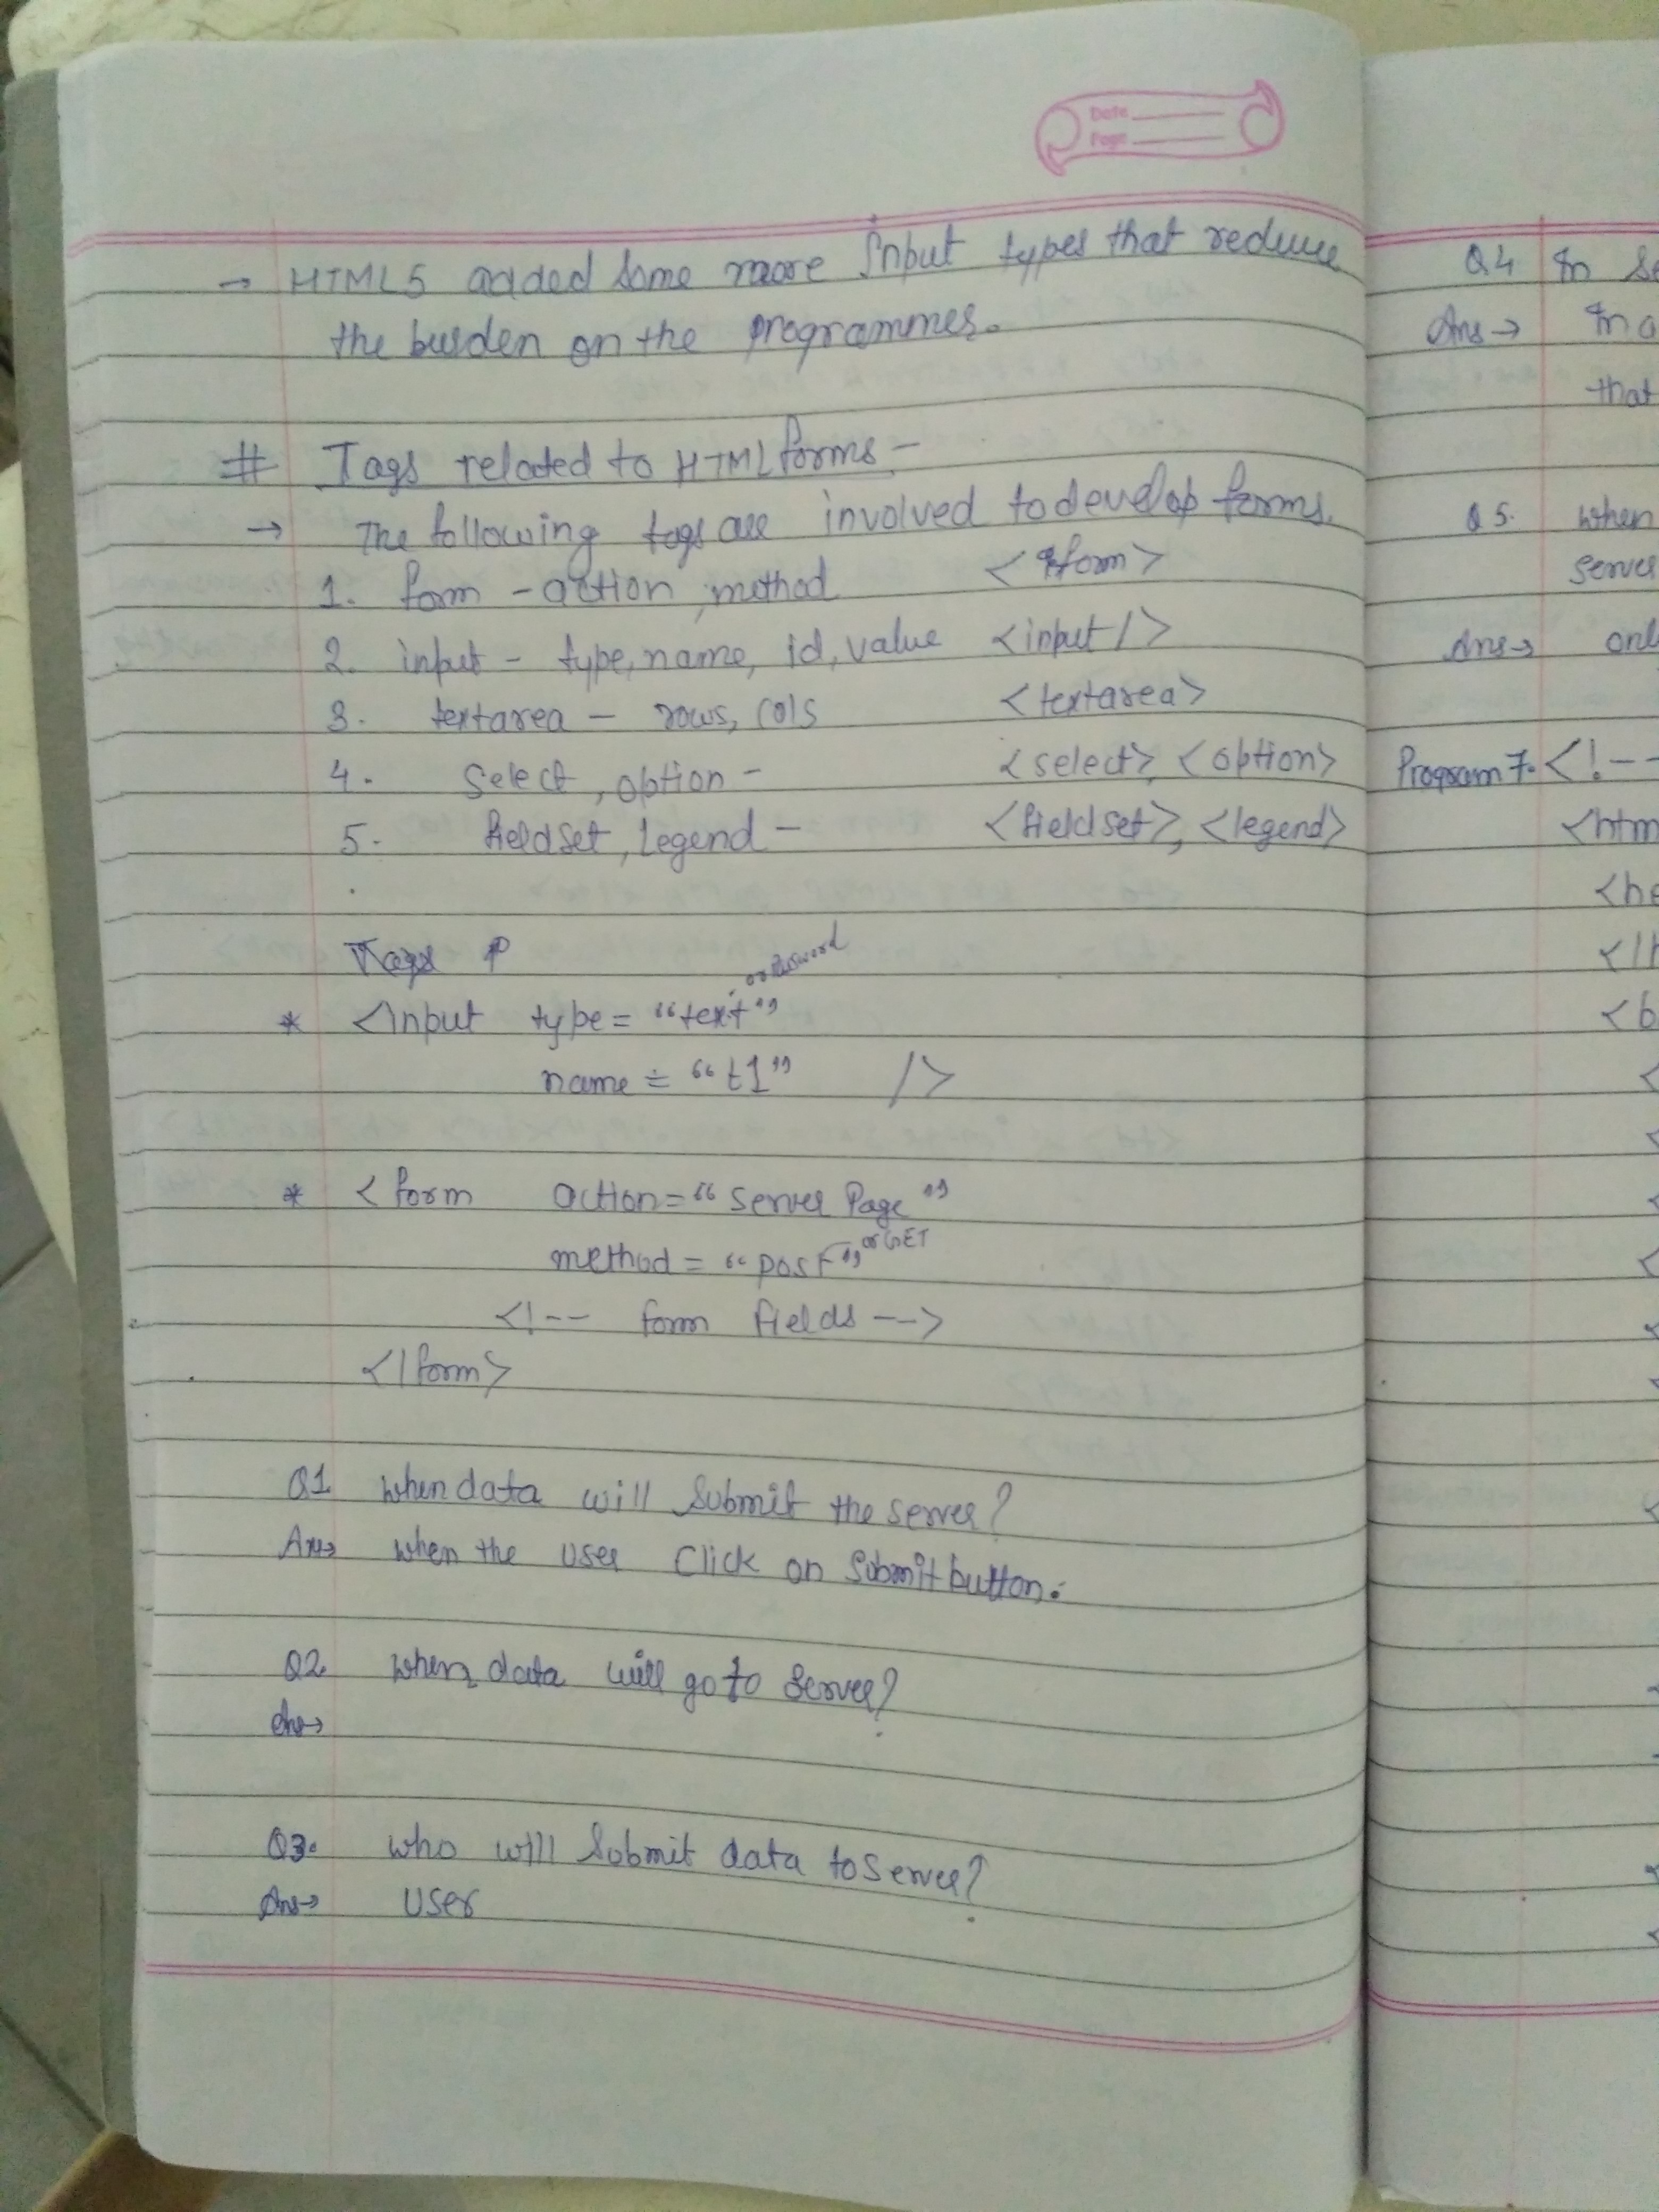 Date
Page
→ HTML5 added some more Input types that reduce
the burden on the programmes.
# Tags related to HTML forms -
→ The following tags are involved to develop forms.
1. form - action, method <form>
2. input - type, name, id, value <input />
3. textarea - rows, cols <textarea>
4. Select, option - <select>, <option>
5. fieldset, Legend - <fieldset>, <legend>
Tags
or Password
* <Input type = "text"
name = "t1" />
* <form action = "server Page"
method = "post" or GET
<!-- form fields -->
</form>
Q1 when data will Submit the server?
Ans→ when the user Click on Submit button.
Q2 when data will go to server?
Ans→
Q3. who will Submit data to server?
Ans→ user
Q4 In
Ans→ In
that
Q5. when
server
Ans→
Program 7. <!--